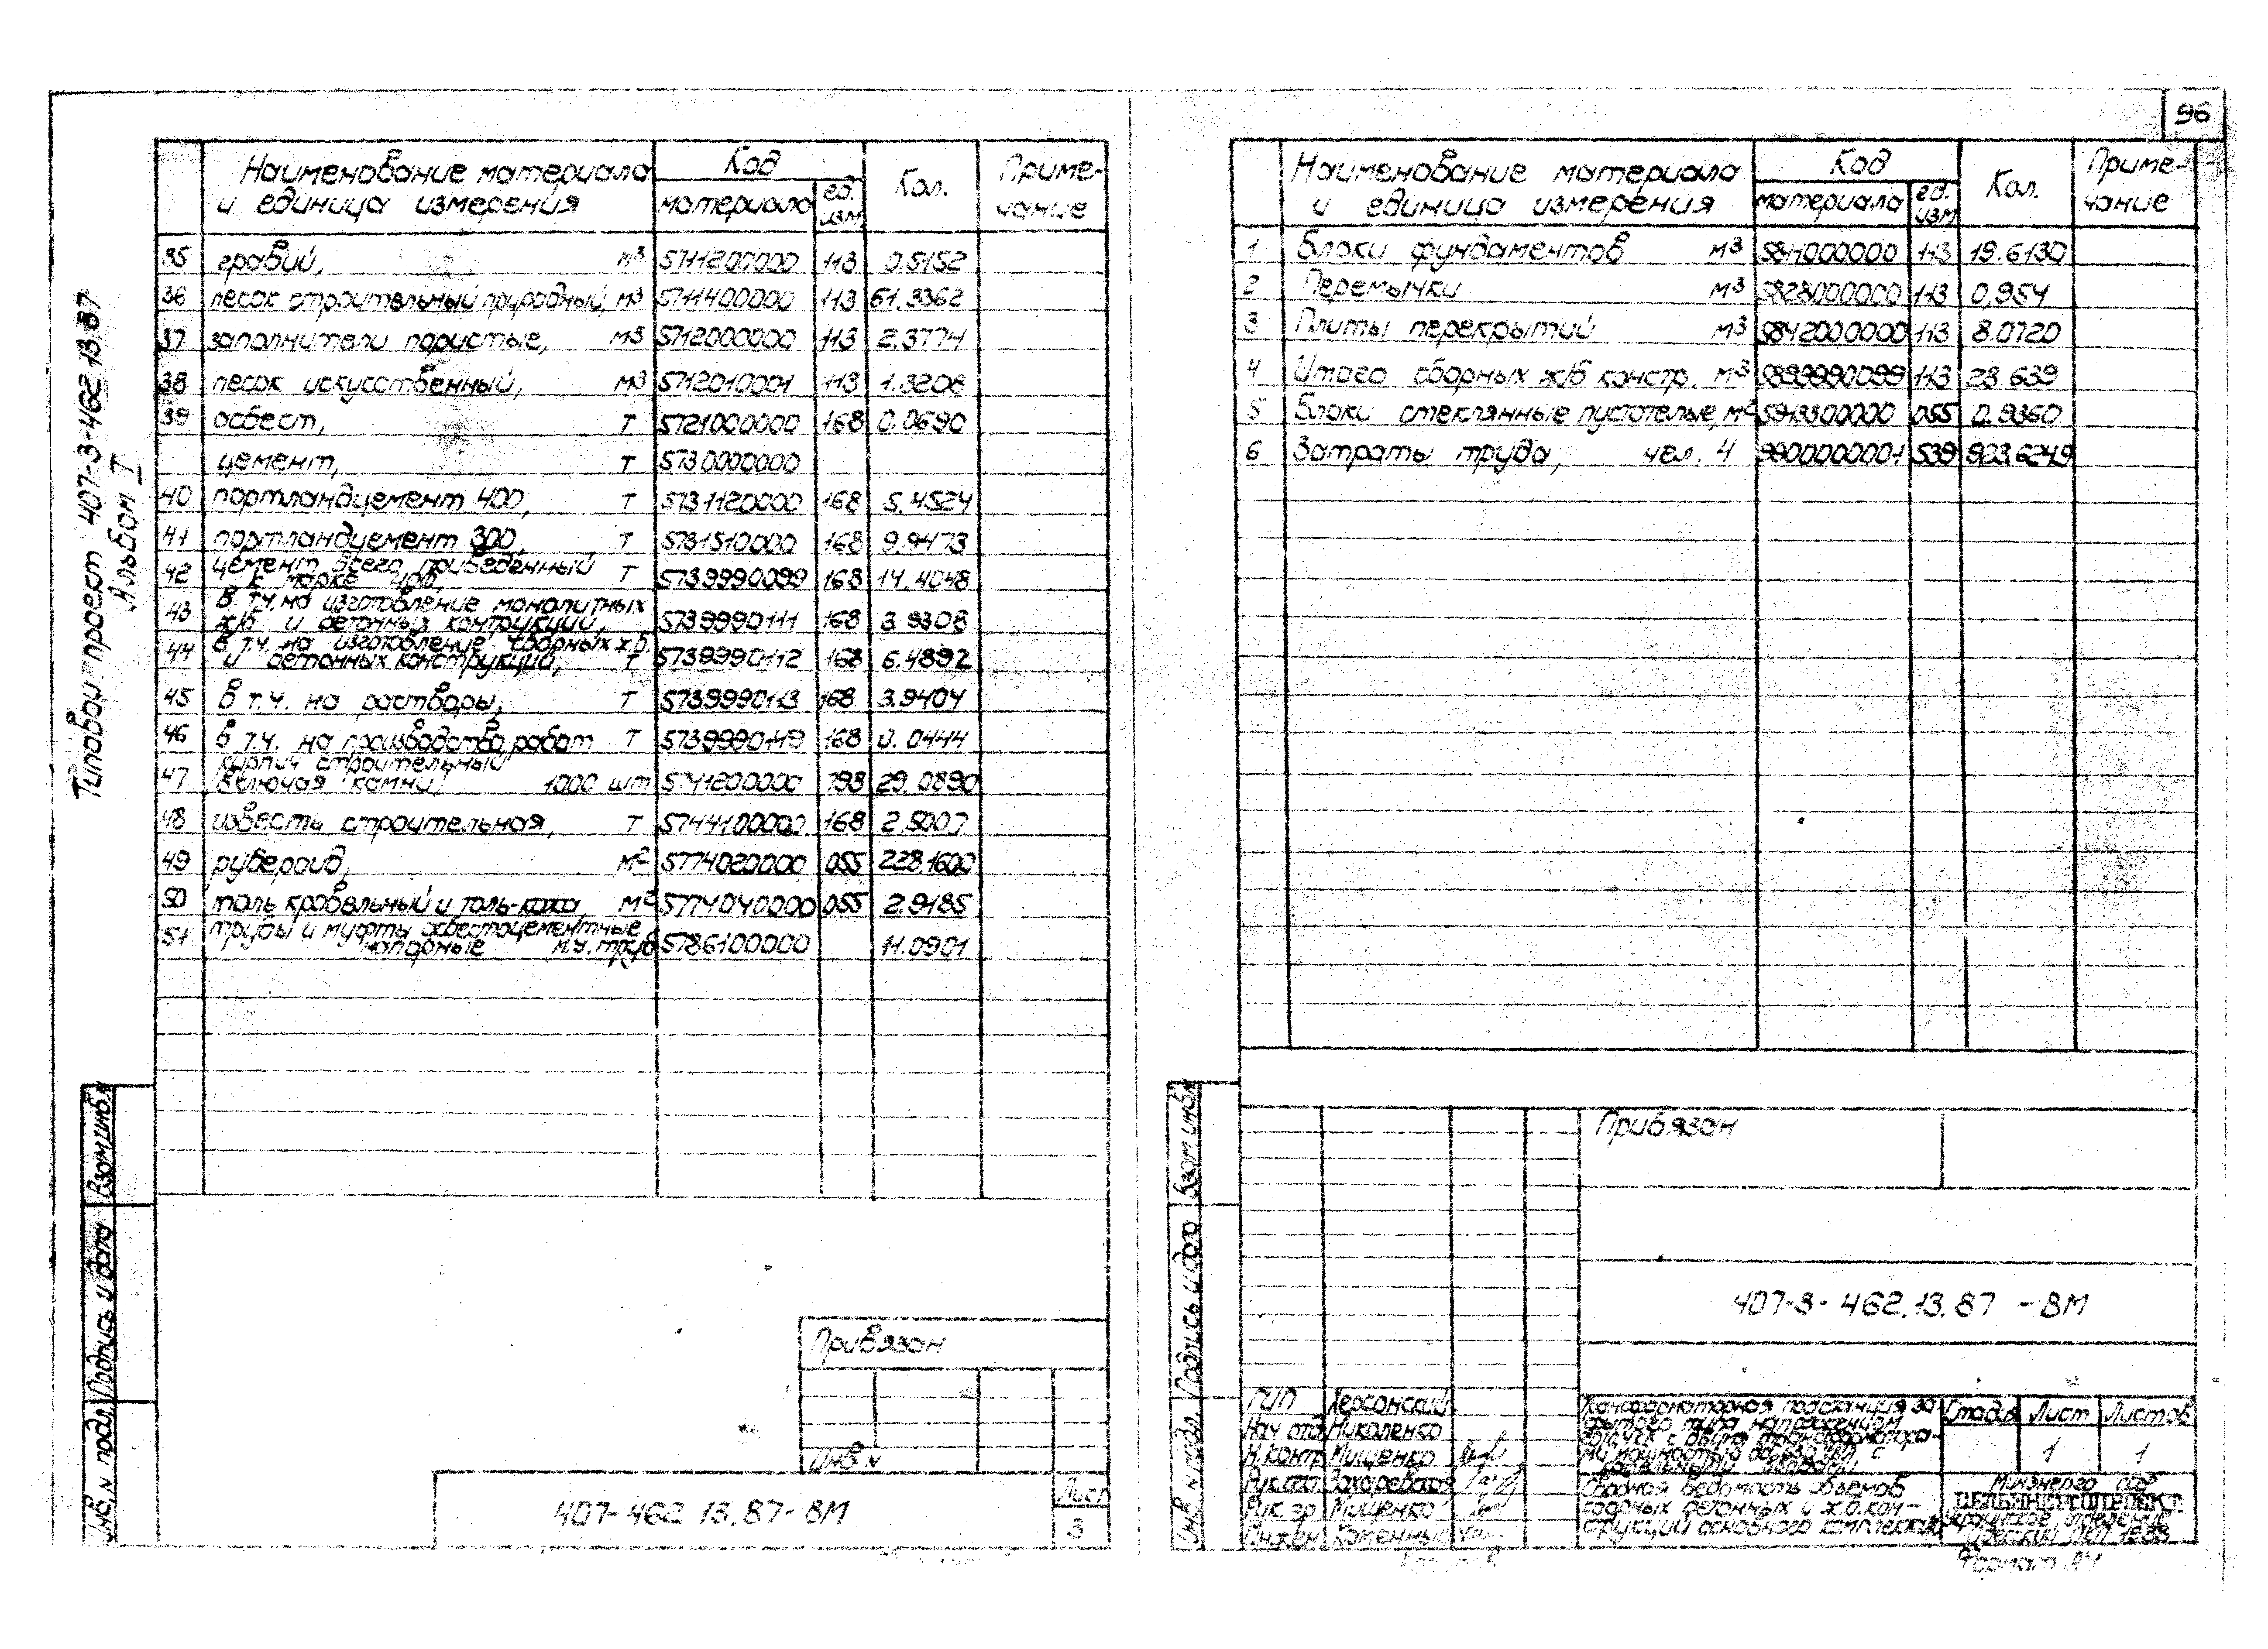 96
Типовой проект 407-3-462.13.87
Альбом I
Наименование материала и единица измерения Код материала ед. изм Кол. Приме-чание
35 гравий, м3 5711200000 113 0.5152
36 песок строительный природный, м3 5711400000 113 61.3362
37 заполнители пористые, м3 5712000000 113 2.3774
38 песок искусственный, м3 5712010001 113 1.3208
39 асбест, т 5721000000 168 0.0690
цемент, т 5730000000
40 портландцемент 400, т 5731120000 168 5.4524
41 портландцемент 300, т 5731510000 168 9.9473
42 цемент всего приведенный к марке 400, т 5739990099 168 14.4048
43 в т.ч. на изготовление монолитных ж/б и бетонных контрукций, 5739990111 168 3.9308
44 в т.ч. на изготовление сборных ж.б. и бетонных конструкций, т 5739990112 168 6.4892
45 в т.ч. на растворы, т 5739990113 168 3.9404
46 в т.ч. на производство работ т 5739990119 168 0.0444
47 кирпич строительный включая камни, 1000 шт 5741200000 798 29.0890
48 известь строительная, т 5744100000 168 2.5007
49 рубероид, м2 5774020000 055 228.1600
50 толь кровельный и толь-кожа, м2 5774040000 055 2.9185
51 трубы и муфты асбестоцементные напорные м.у.труб 5786100000 11.0901
Привязан
Инв N
407-462.13.87-ВМ
Лист
3
Взам инв N
Подпись и дата
Инв. N подл.
Наименование материала и единица измерения Код материала ед. изм Кол. Приме-чание
1 Блоки фундаментов м3 5811000000 113 19.6130
2 Перемычки м3 5828000000 113 0,954
3 Плиты перекрытий м3 5842000000 113 8.0720
4 Итого сборных ж/б констр. м3 5899990099 113 28.639
5 Блоки стеклянные пустотелые, м2 5913300000 055 0.9360
6 Затраты труда, чел. ч 9900000001 539 923.6249
Привязан
407-3-462.13.87 -ВМ
Взам инв N
Подпись и дата
Инв N подл.
ГИП Херсонский
Нач отд Николенко
Н.контр Мищенко
Рук.гр Мищенко
Инжен
Трансформаторная подстанция за-
крытого типа напряжением
Стадия Лист Листов
1 1
Сводная ведомость объемов
сборных бетонных и ж.б.кон-
струкций основного комплекта
Минэнерго СССР
СЕЛЬЭНЕРГОПРОЕКТ
Украинское отделение
Формат А4